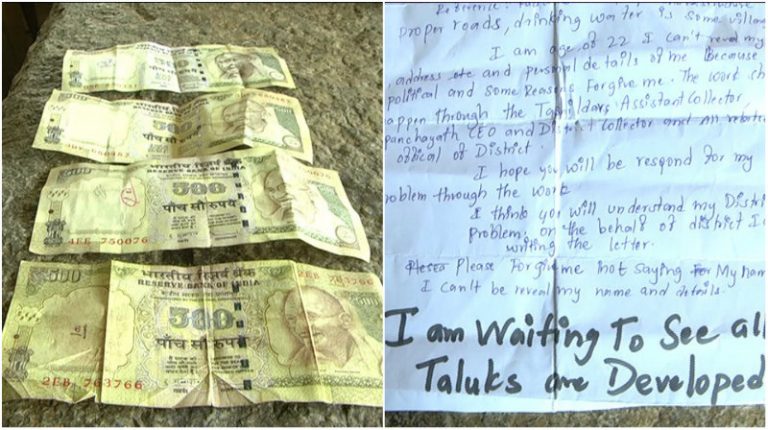 500
पाँच सौ रुपये
500
पाँच सौ रुपये
भारतीय रिज़र्व बैंक
RESERVE BANK OF INDIA
500
पाँच सौ रुपये
4EE 750076
500
भारतीय रिज़र्व बैंक
2EB 763766
RESERVE BANK OF INDIA
500
पाँच सौ रुपये
2EB 763766
Reference:
proper roads, drinking water is some villa
I am age of 22 I can't reveal my
address etc and personal details of me Because
political and some Reasons Forgive me. The work sh
appen through the Tahsildars Assistant Collector,
panchayath CEO and District Collector and All related
offical of District.
I hope you will be respond for my
roblem through the work
I think you will understand my Distri
problem: on the behalf of district I a
writing the letter.
Please Forgive me not saying For My nam
I can't be reveal my name and details.
I am Waiting To See all
Taluks are Developed